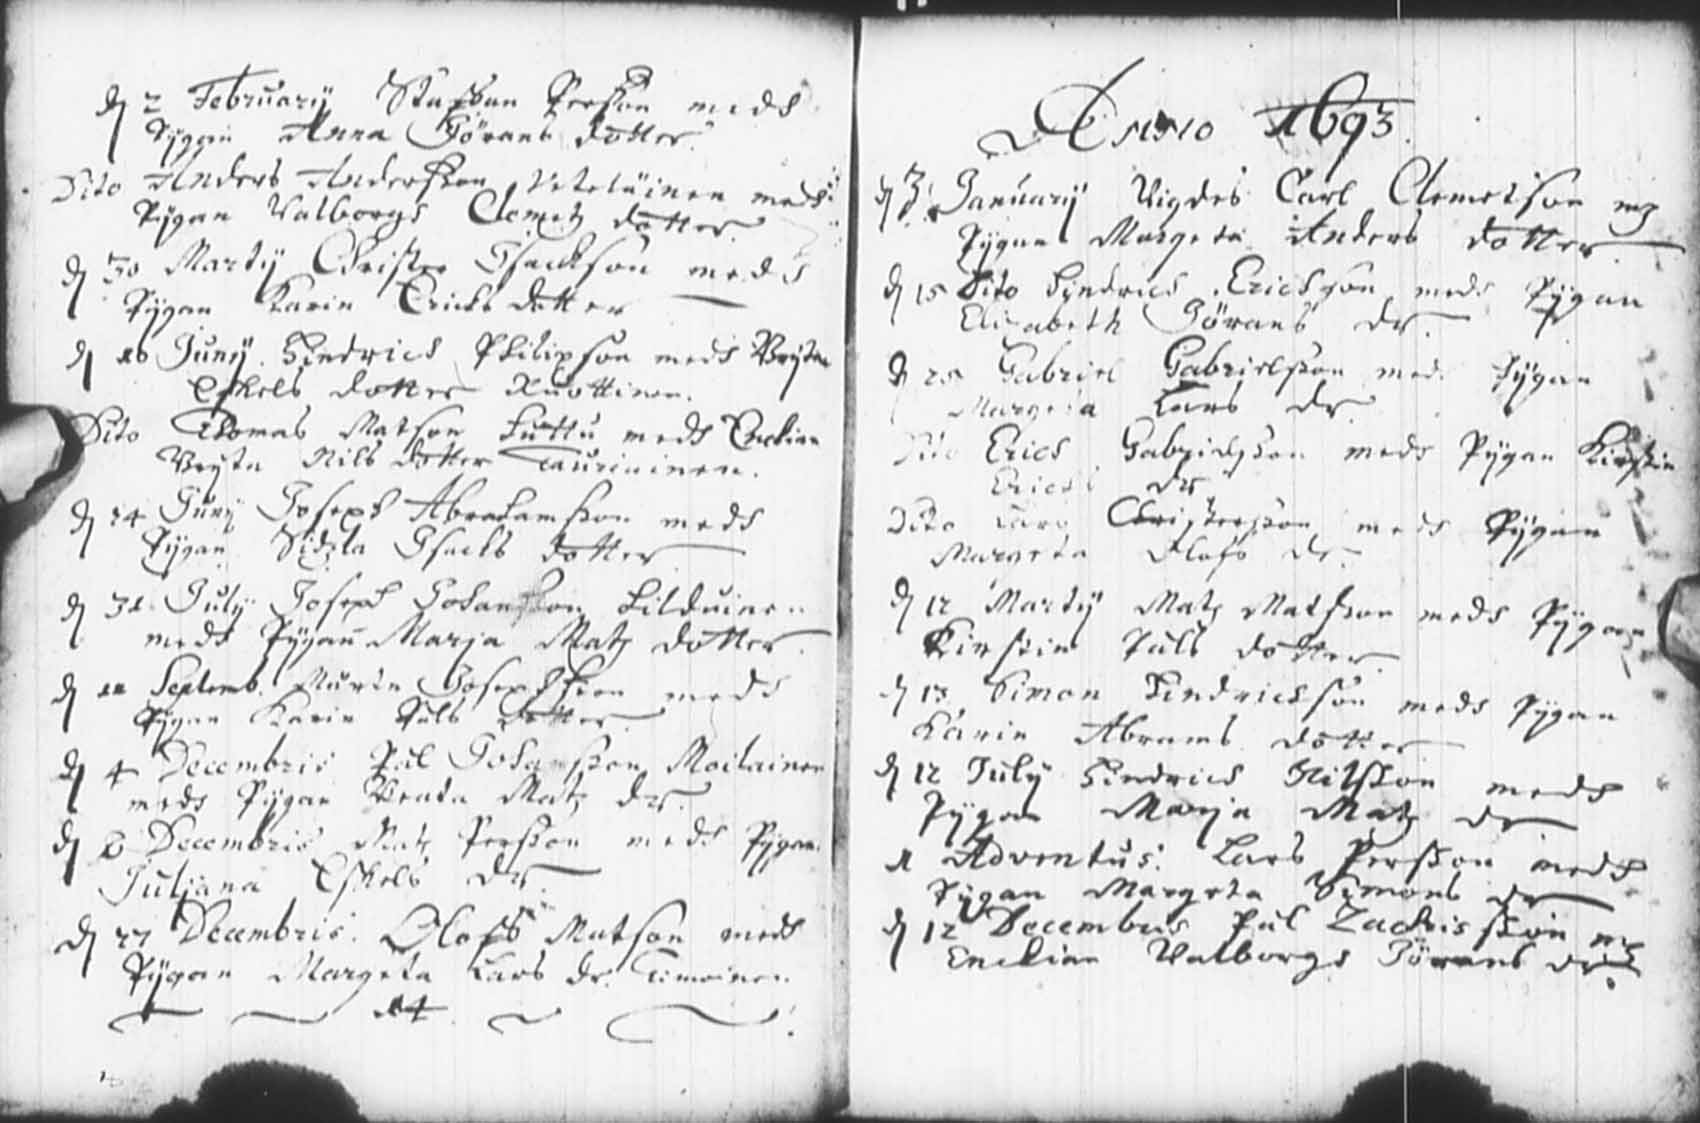 d 2 February Staffan Persson medh
Pygan Anna Görans dotter.
Dito Anders Andersson medh
Pygan Valborgh Clemetz dotter
d 30 Martij Christer Isackson medh
Pygan Karin Erichs dotter
d 26 Junij Hindrich Philipson medh Bryta
Eskels dotter Ruottinen.
Dito Thomas Matson Huttu medh Enckian
Bryta Nils dotter Taurininen.
d 24 Junij Joseph Abrahamsson medh
Pygan Isachs dotter
d 31 July Joseph Johansson Hilduinen
medh Pygan Marja Matz dotter
d 11 Septemb. Josephsson medh
Pygan Karin Påls dotter
d 4 Decembris Pål Johansson Moilainen
medh Pygan Beata Matz dr.
d 6 Decembris Matz Persson medh Pygan
Juliana Eskels dr.
d 27 Decembris. Oloff Matson medh
Pygan Margeta Lars dr. Timoinen
14
Anno 1693
d 3 January Vigdes Carl Clemetson mz
Pygan Margeta Anders dotter
d 15 Dito Hindrich Ericsson medh Pygan
Elisabeth Görans dr.
d 25 Gabriel Gabrielsson medh Pygan
Margeta Lars dr
Dito Erich Gabrielsson medh Pygan Kirstin
Erichs dr
Dito Lars Christersson medh Pygan
Margeta Olofs dr.
d 12 Martij Matz Matsson medh Pygan
Kirstin Påls dotter.
d 13 Simon Hindrichsson medh Pygan
Karin Abrams dotter
d 12 July Hindrich Nilsson medh
Pygan Marja Matz dr
1 Adventus. Lars Persson medh
Pygan Margeta Simons dr
d 12 Decembris Pål Zachrisson mz
Enckian Valborgh Görans dr